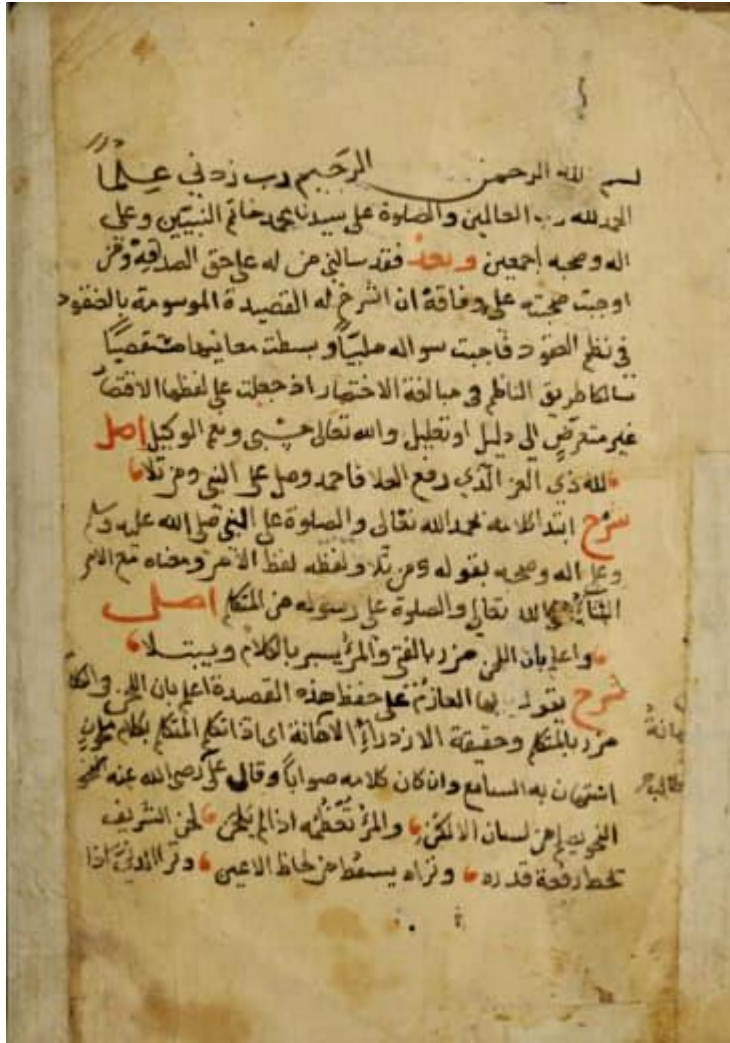 بسم الله الرحمن الرحيم رب زدني علما
الحمد لله رب العالمين والصلوة على سيدنا محمد خاتم النبيين وعلى
اله وصحبه اجمعين وبعد فقد سالني من له على حق الصداقة ومن
اوجبت صحبته على وفاقه ان اشرح له القصيدة الموسومة بالعقود
في نظم العقود فاجبت سواله ملبيا وبسطت معانيها مستقصيا
سالكا طريق الناظم في مبالغة الاختصار اذ جعلت على لفظها الاقتصار
غير متعرض الى دليل او تعليل والله تعالى حسبي ونعم الوكيل اصل
لله ذي العز الذي رفع العلا فاحمد وصل على النبي ومن تلا
شرح ابتدا كلامه بحمد الله تعالى والصلوة على النبي صلى الله عليه وسلم
وعلى اله وصحبه بقوله ومن تلا ولفظه لفظ الامر ومعناه مع الامر
الله تعالى والصلوة على رسوله من المتكلم اصل
واعلم بان اللحن مزر بالفتى والمرؤ يسبر بالكلام ويبتلا
شرح يقول ايها العازم على حفظ هذه القصيدة اعلم بان اللحن
مزر بالمتكلم وحقيقة الازدراء الاهانة اى اذا تكلم المتكلم بكلام ملحون
استهان به السامع وان كان كلامه صوابا وقال على رضى الله عنه
النحو يصلح من لسان الالكن والمرؤ تعظمه اذا لم يلحن لحن الشريف
تحط رفعة قدره وتراه يسقط من لحاظ الاعين وترى الدنى اذا